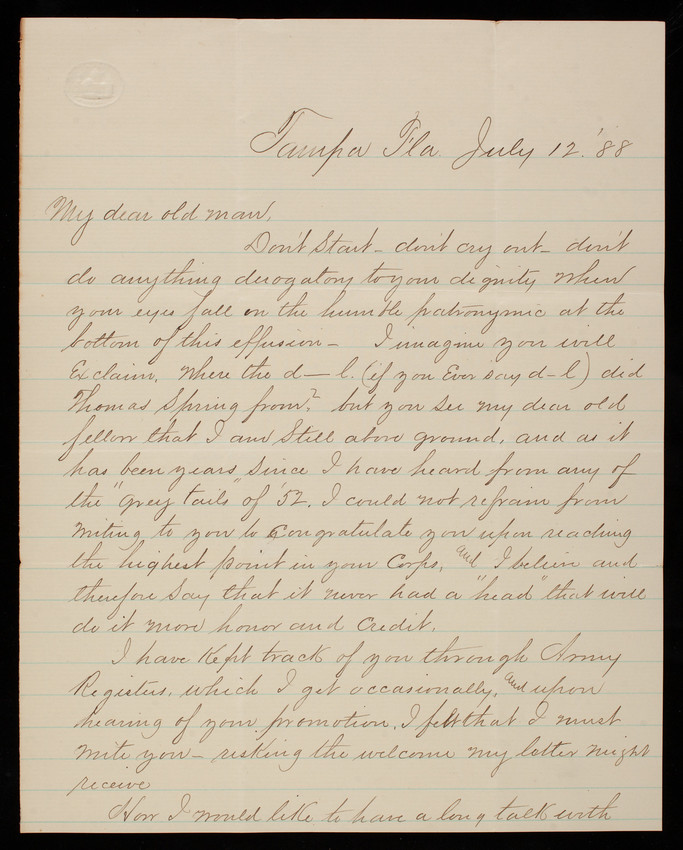 Tampa Fla. July 12. '88
My dear old man,
Don't Start - don't cry out - don't
do anything derogatory to your dignity when
your eyes fall on the humble patronymic at the
bottom of this effusion - I imagine you will
Exclaim, Where the d—l. (if you Ever say d-l) did
Thomas Spring from? but you see my dear old
fellow that I am Still above ground, and as it
has been years since I have heard from any of
the "grey tails" of '52. I could not refrain from
writing to you to Congratulate you upon reaching
the highest point in your Corps, and I believe and
therefore Say that it never had a "head" that will
do it more honor and Credit.
I have Kept track of you through Army
Registers, which I get occasionally, and upon
hearing of your promotion, I felt that I must
write you - risking the welcome my letter might
receive
How I would like to have a long talk with